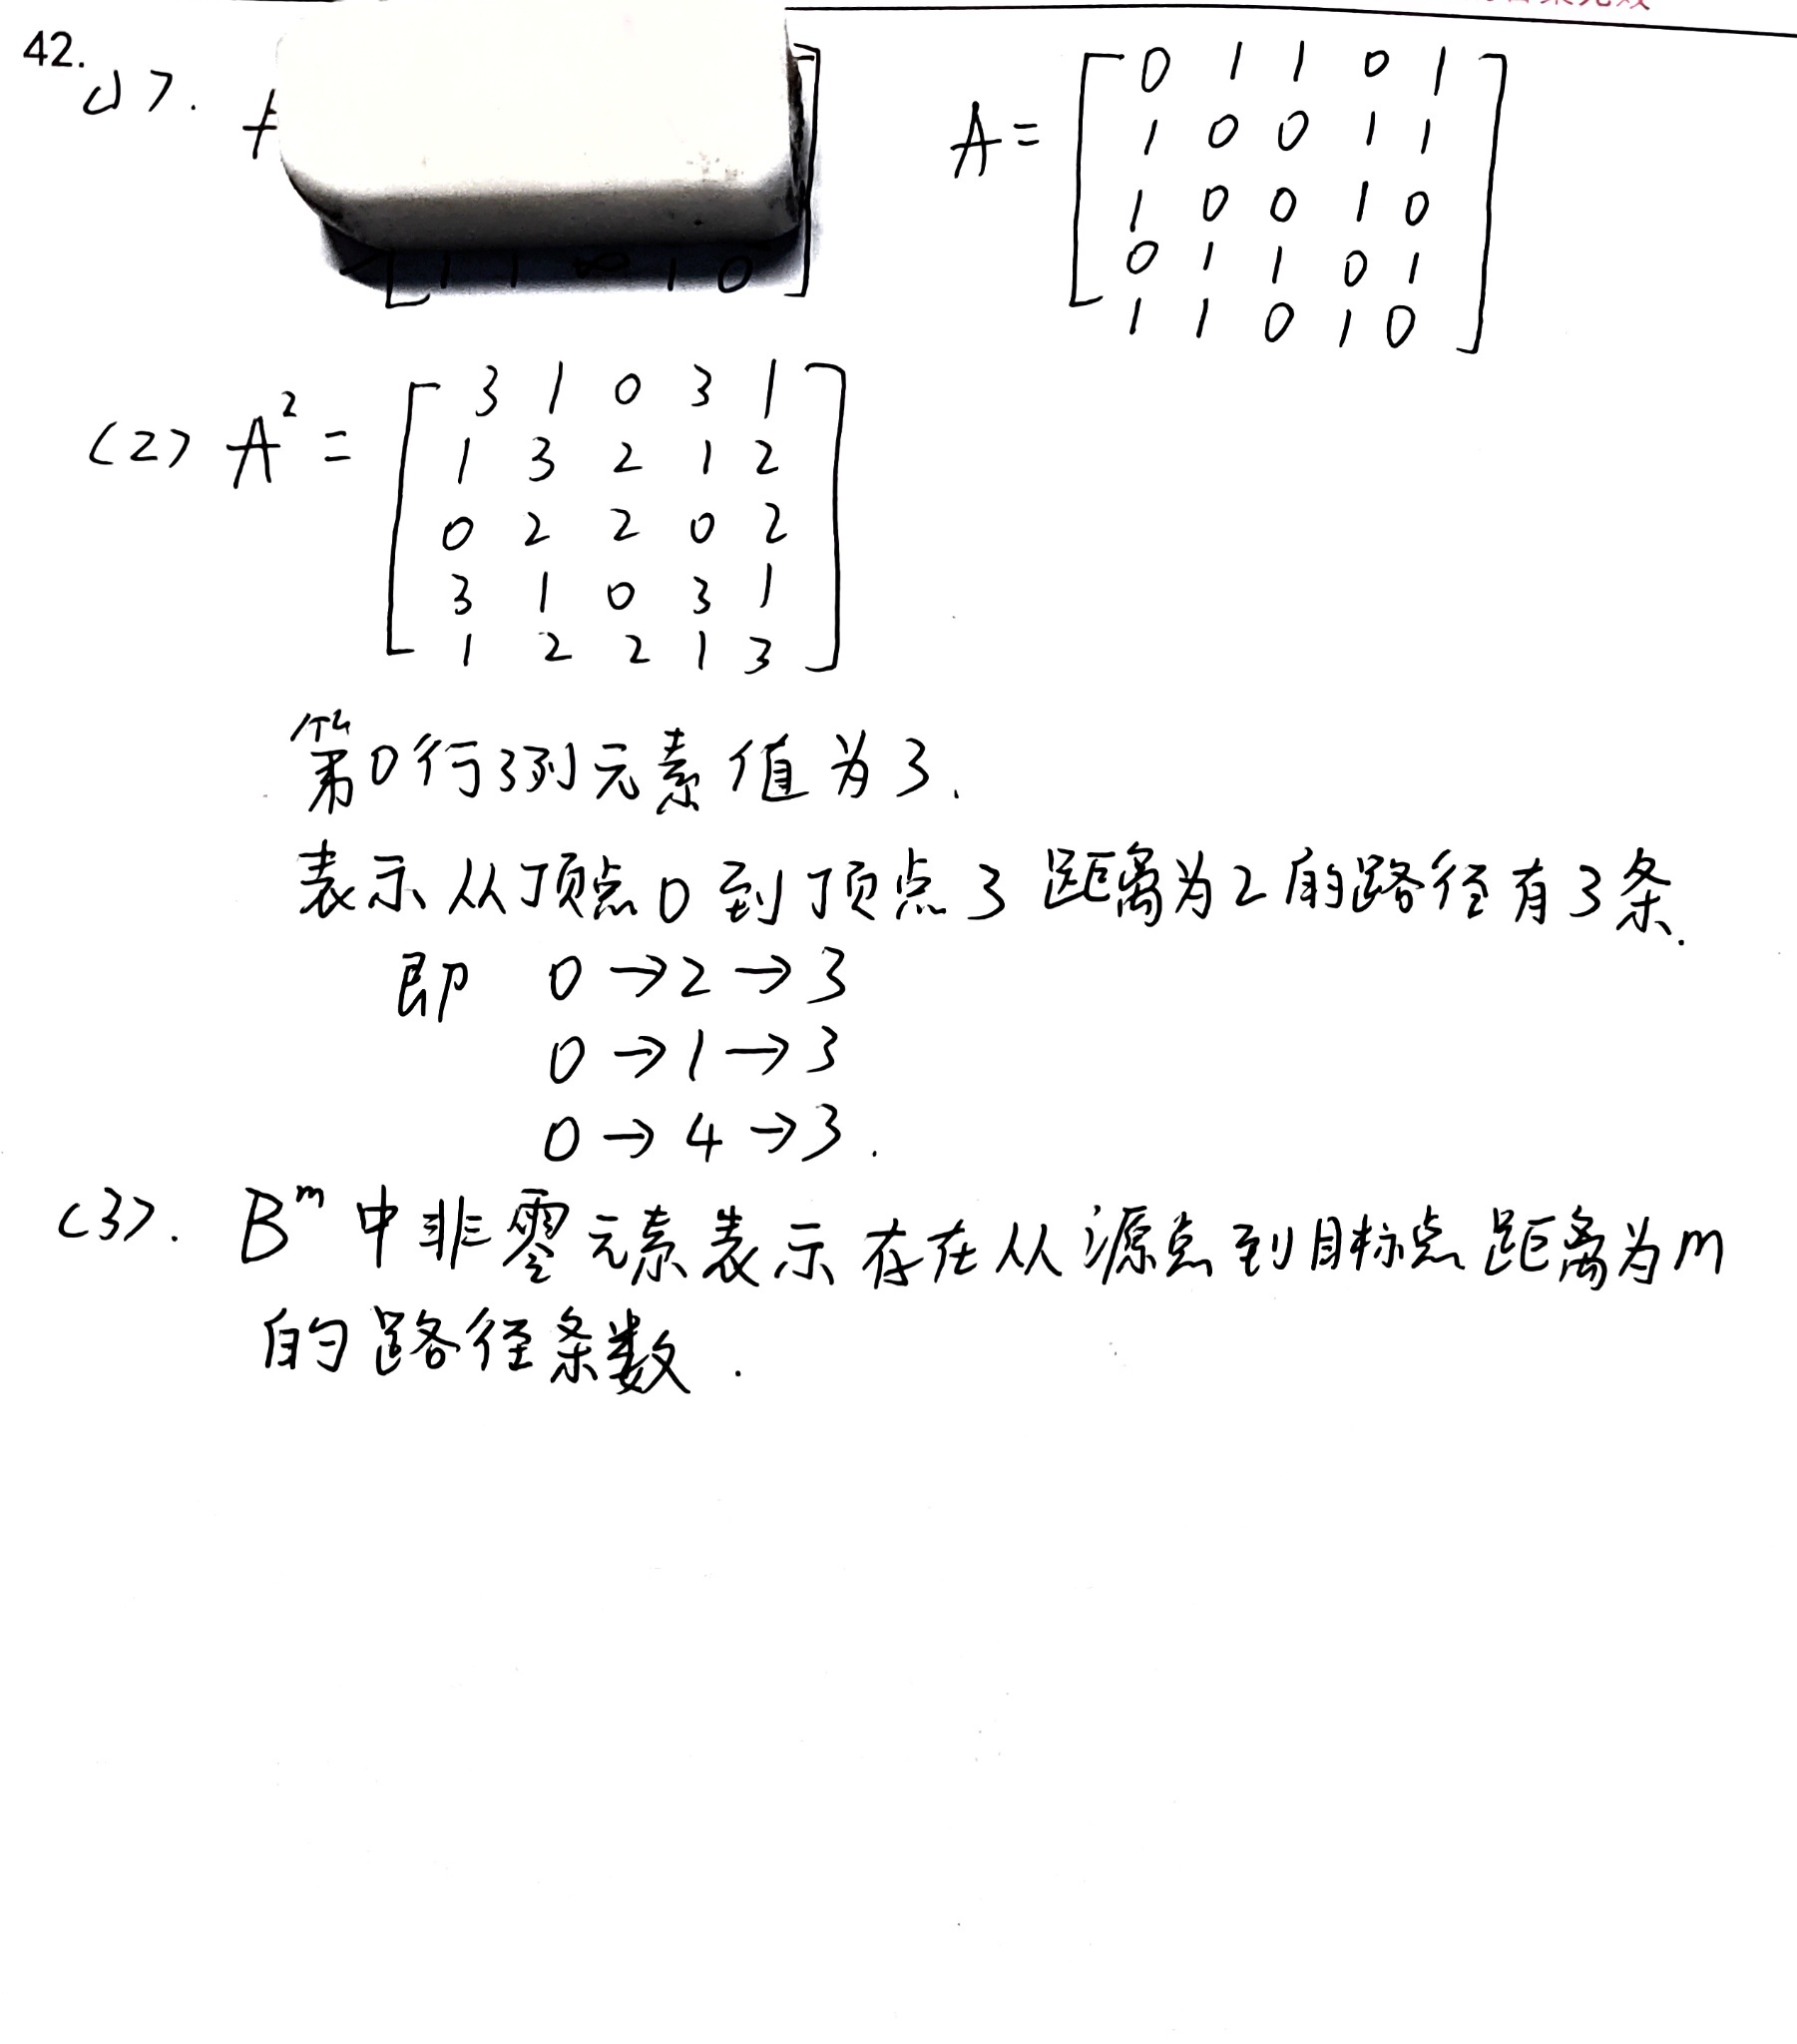 42.
(1).
A = [0 1 1 0 1
1 0 0 1 1
1 0 0 1 0
0 1 1 0 1
1 1 0 1 0]
[1 1 ∞ 1 0]
(2) A² = [3 1 0 3 1
1 3 2 1 2
0 2 2 0 2
3 1 0 3 1
1 2 2 1 3]
第0行3列元素值为3.
表示从顶点0到顶点3距离为2的路径有3条.
即 0→2→3
0→1→3
0→4→3.
(3). Bᵐ中非零元素表示存在从源点到目标点距离为m
的路径条数.